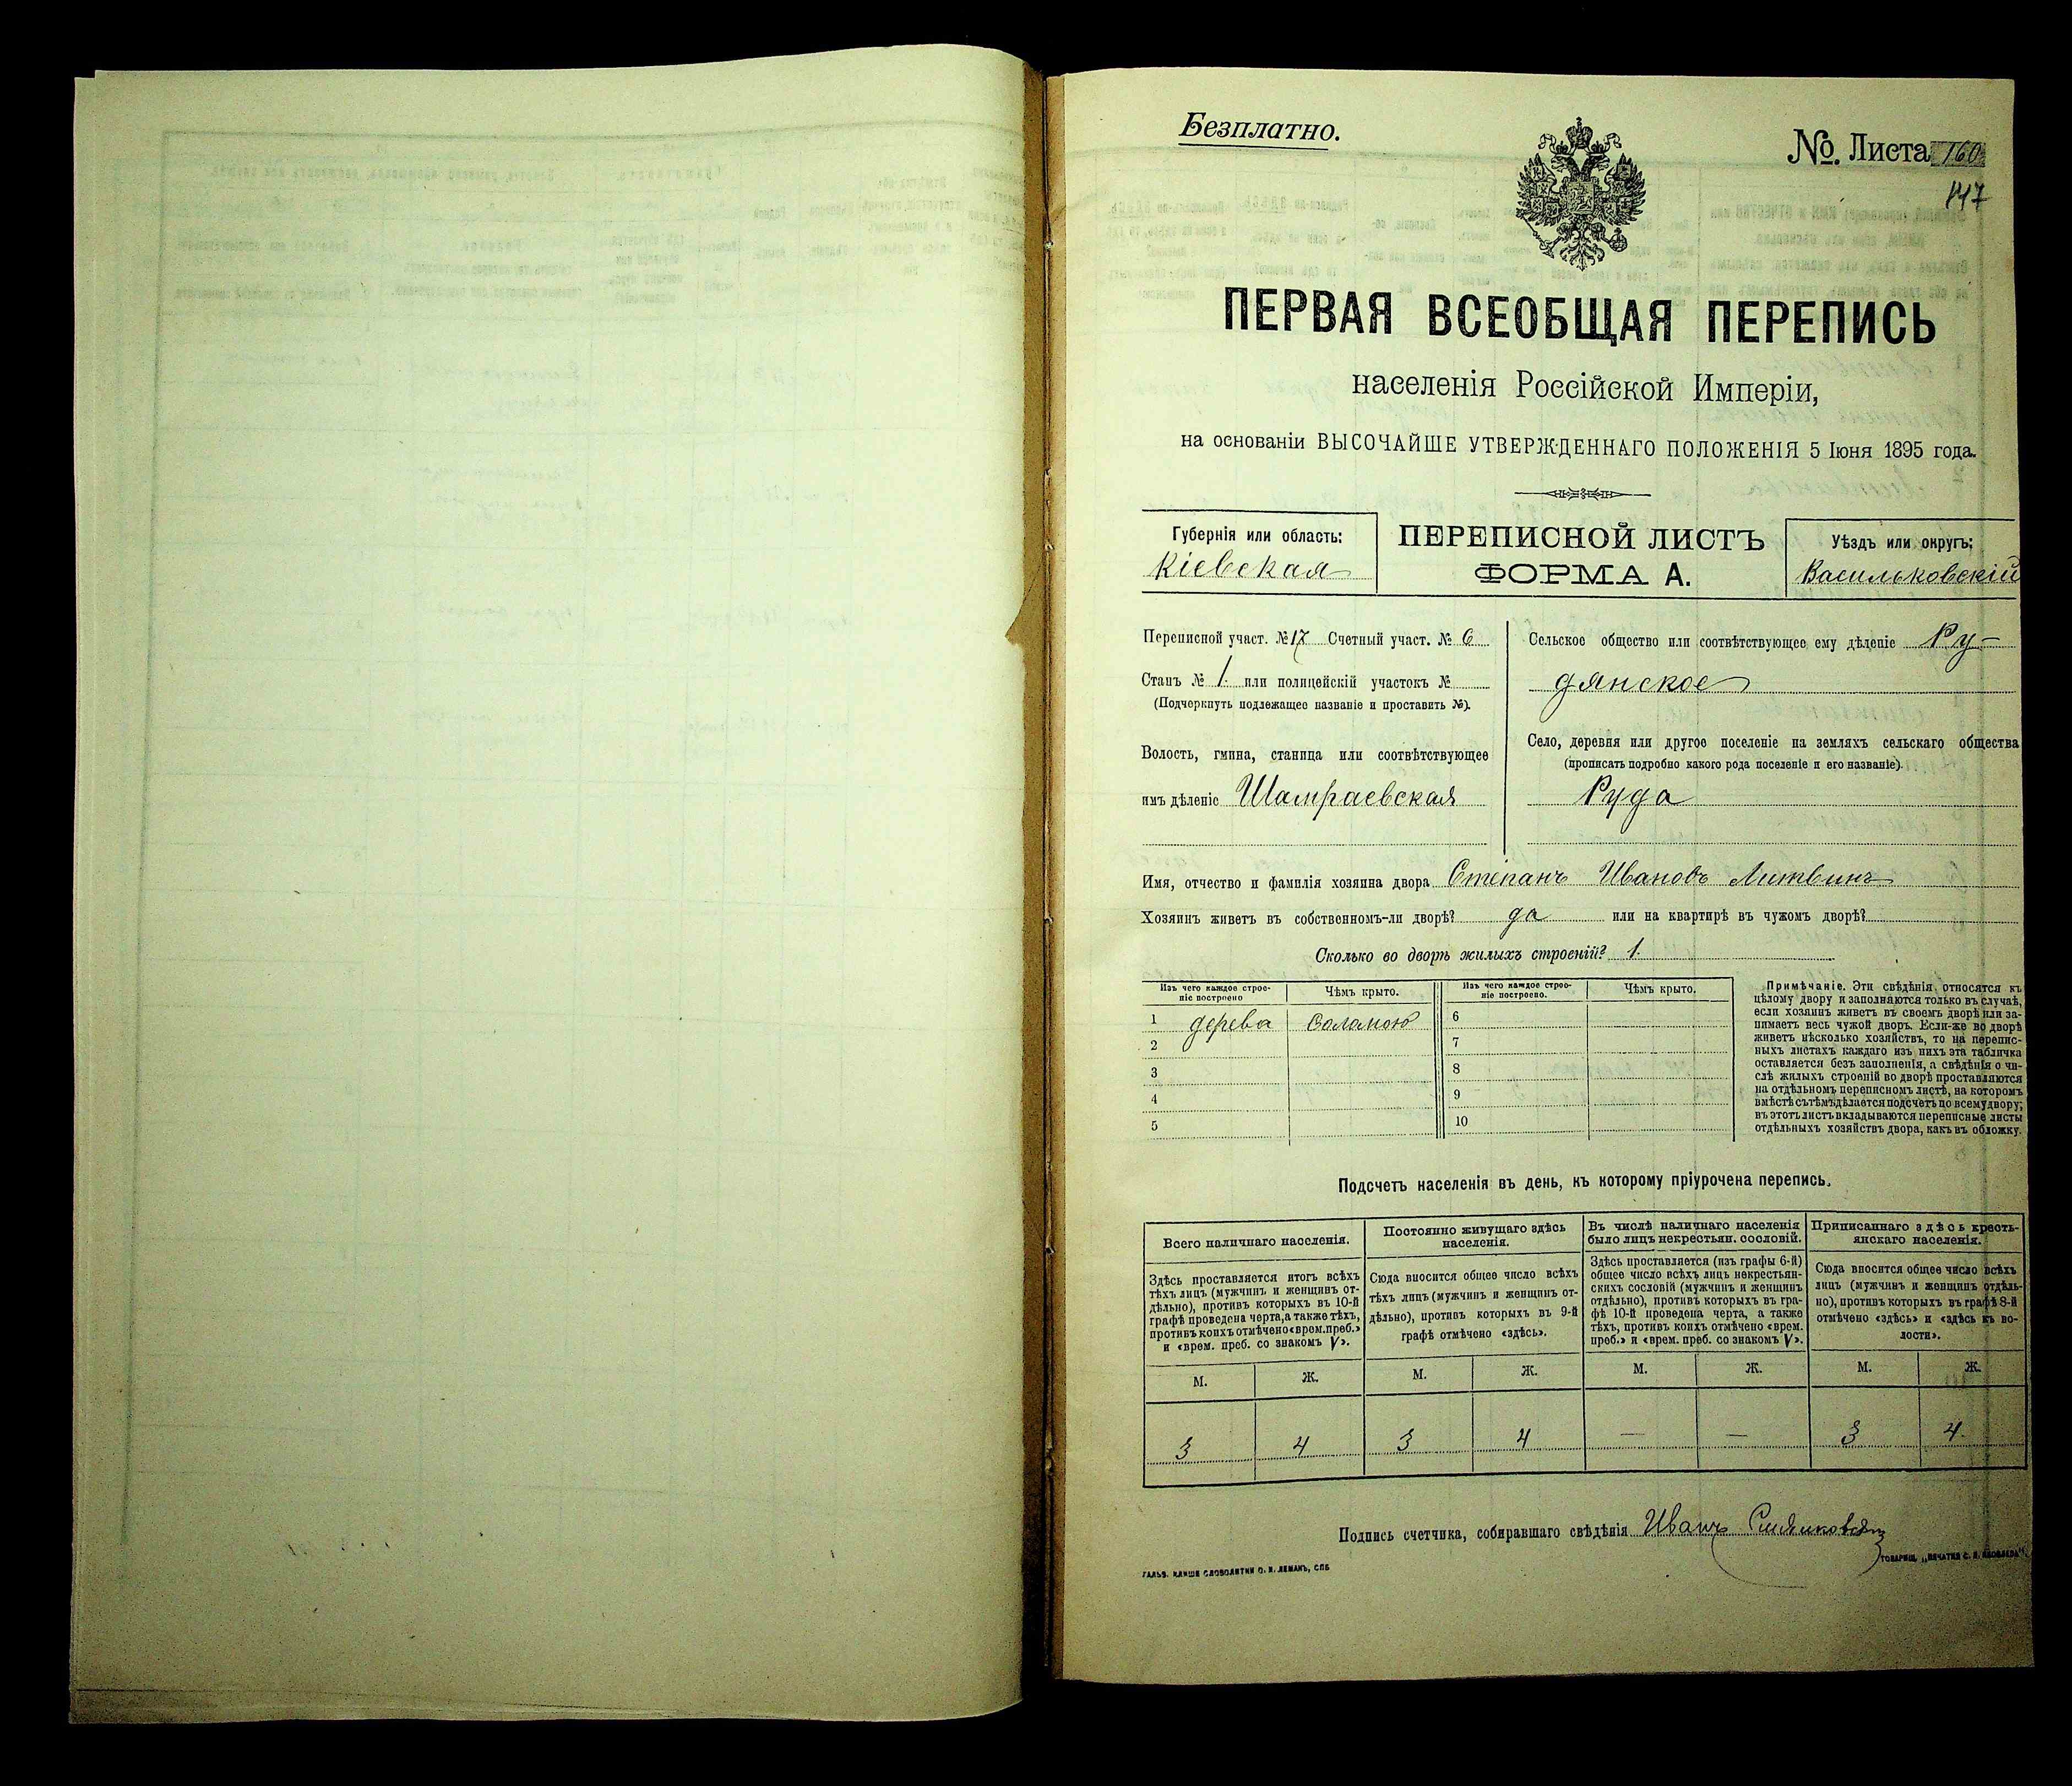 Безплатно.
№ Листа 160
147
ПЕРВАЯ ВСЕОБЩАЯ ПЕРЕПИСЬ
населенія Россійской Имперіи,
на основаніи ВЫСОЧАЙШЕ УТВЕРЖДЕННАГО ПОЛОЖЕНІЯ 5 Іюня 1895 года.
Губернія или область:
Кіевская
ПЕРЕПИСНОЙ ЛИСТЪ
ФОРМА А.
Уѣздъ или округъ:
Васильковскій
Переписной участ. № 17 Счетный участ. № 6
Станъ № 1. или полицейскій участокъ №
(Подчеркнуть подлежащее названіе и проставить №).
Волость, гмина, станица или соотвѣтствующее
имъ дѣленіе Шамраевская
Сельское общество или соотвѣтствующее ему дѣленіе Ру-
дянское
Село, деревня или другое поселеніе на земляхъ сельскаго общества
(прописать подробно какого рода поселеніе и его названіе).
Руда
Имя, отчество и фамилія хозяина двора Степанъ Ивановъ Литвинъ
Хозяинъ живетъ въ собственномъ-ли дворѣ? да или на квартирѣ въ чужомъ дворѣ?
Сколько во дворѣ жилыхъ строеній? 1.
Изъ чего каждое строе-
ніе построено
Чѣмъ крыто.
Изъ чего каждое строе-
ніе построено.
Чѣмъ крыто.
1 дерева соломою 6
2 7
3 8
4 9
5 10
Примѣчаніе. Эти свѣдѣнія относятся къ
цѣлому двору и заполняются только въ случаѣ,
если хозяинъ живетъ въ своемъ дворѣ или за-
нимаетъ весь чужой дворъ. Если-же во дворѣ
живетъ нѣсколько хозяйствъ, то на перепис-
ныхъ листахъ каждаго изъ нихъ эта табличка
оставляется безъ заполненія, а свѣдѣнія о чи-
слѣ жилыхъ строеній во дворѣ проставляются
на отдѣльномъ переписномъ листѣ, на которомъ
вмѣстѣ съ тѣмъ дѣлается подсчетъ по всему двору;
въ этотъ листъ вкладываются переписные листы
отдѣльныхъ хозяйствъ двора, какъ въ обложку.
Подсчетъ населенія въ день, къ которому пріурочена перепись.
Всего наличнаго населенія.
Постоянно живущаго здѣсь
населенія.
Въ числѣ наличнаго населенія
было лицъ некрестьян. сословій.
Приписаннаго здѣсь кресть-
янскаго населенія.
Здѣсь проставляется итогъ всѣхъ
тѣхъ лицъ (мужчинъ и женщинъ от-
дѣльно), противъ которыхъ въ 10-й
графѣ проведена черта, а также тѣхъ,
противъ коихъ отмѣчено «врем. преб.»
и «врем. преб. со знакомъ V».
Сюда вносится общее число всѣхъ
тѣхъ лицъ (мужчинъ и женщинъ от-
дѣльно), противъ которыхъ въ 9-й
графѣ отмѣчено «здѣсь».
Здѣсь проставляется (изъ графы 6-й)
общее число всѣхъ лицъ некрестьян-
скихъ сословій (мужчинъ и женщинъ
отдѣльно), противъ которыхъ въ гра-
фѣ 10-й проведена черта, а также
тѣхъ, противъ коихъ отмѣчено «врем.
преб.» и «врем. преб. со знакомъ V».
Сюда вносится общее число всѣхъ
лицъ (мужчинъ и женщинъ отдѣль-
но), противъ которыхъ въ графѣ 8-й
отмѣчено «здѣсь» и «здѣсь къ во-
лости».
М. Ж. М. Ж. М. Ж. М. Ж.
3 4 3 4 — — 3 4
Подпись счетчика, собиравшаго свѣдѣнія Иванъ
ГАЛЬВ. КЛИШЕ СЛОВОЛИТНИ О. И. ЛЕМАНЪ, СПБ
ТОВАРИЩ. „ПЕЧАТНЯ С. П. ЯКОВЛЕВА“.